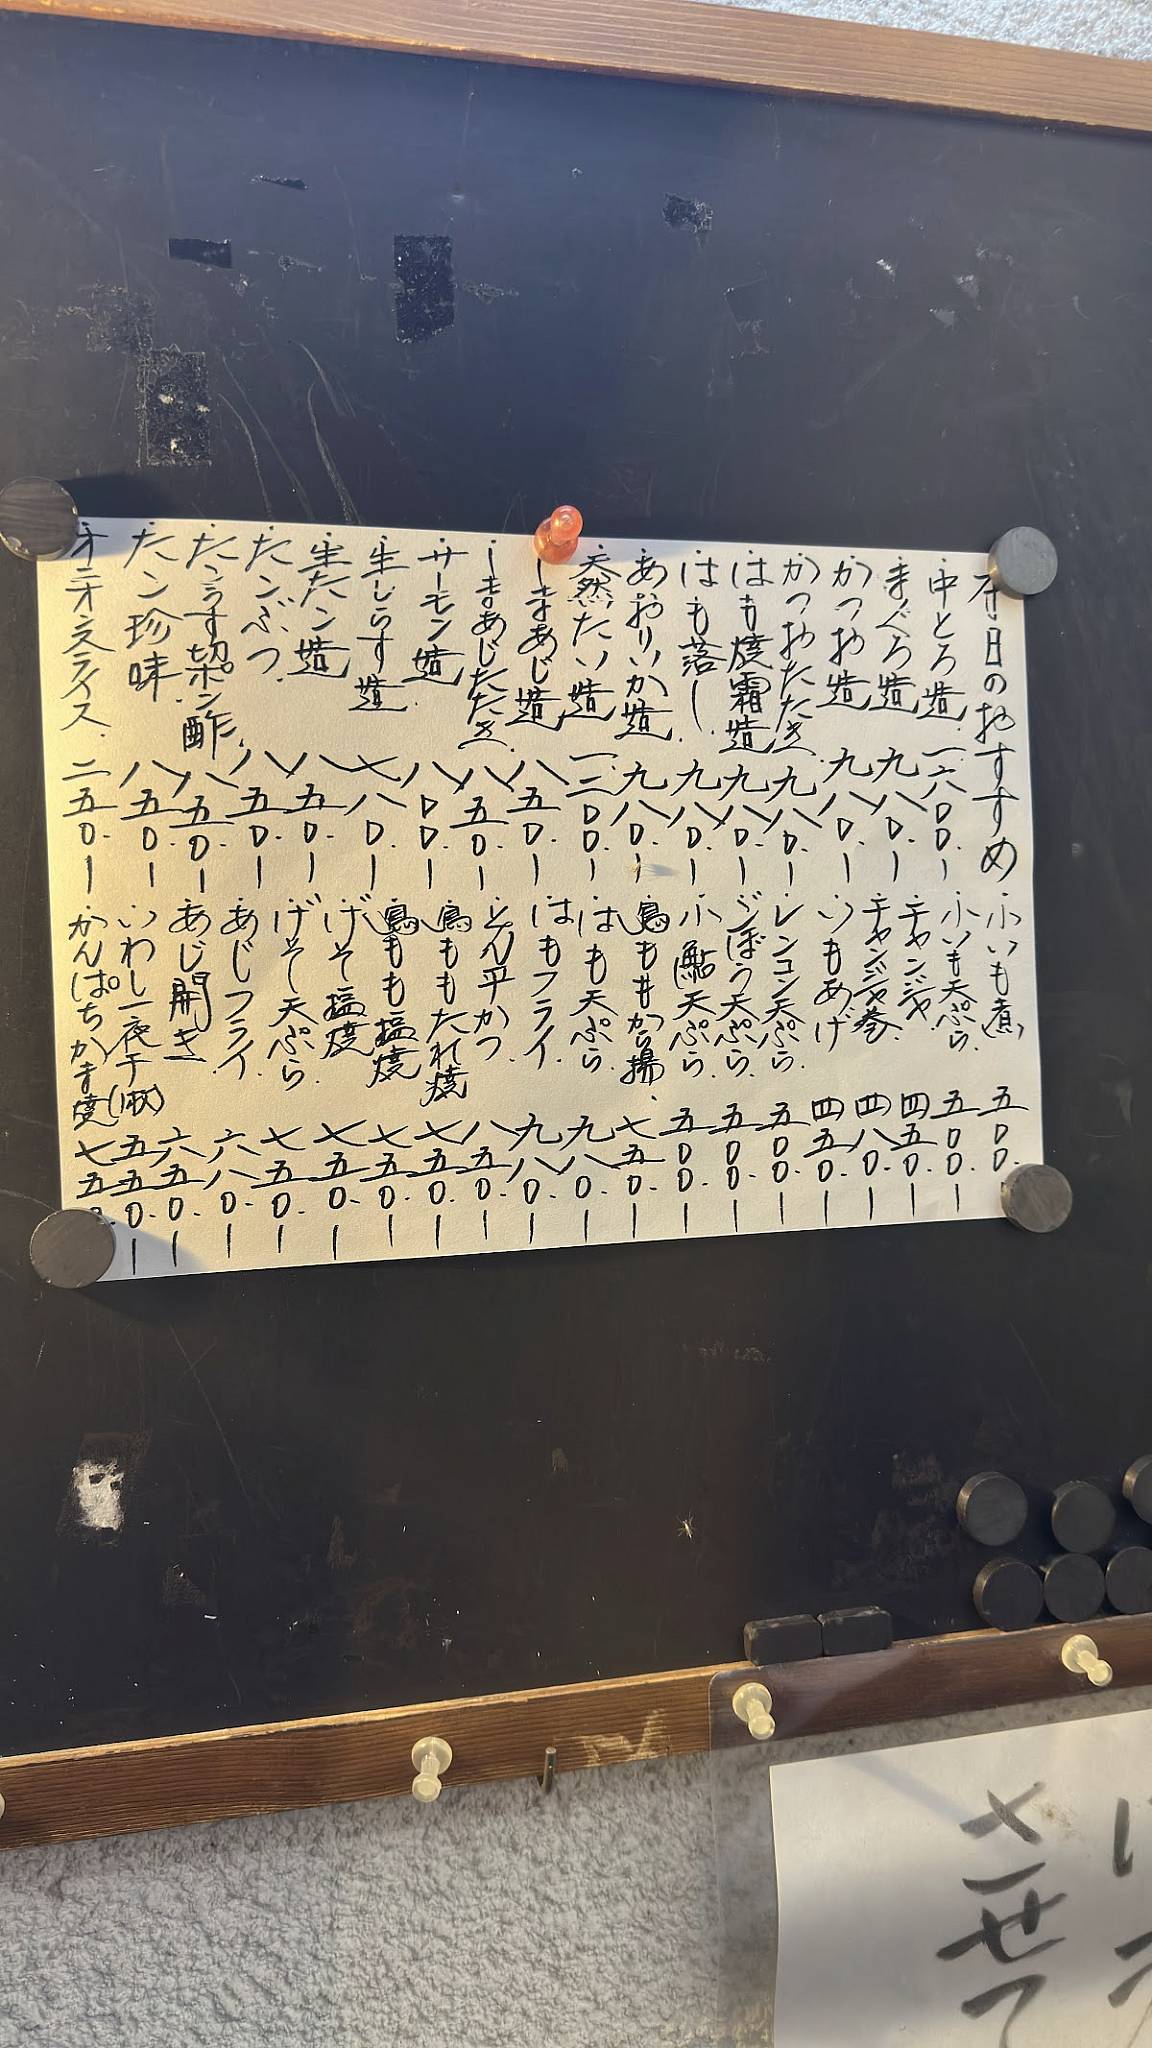 本日のおすすめ
・中とろ造 一六〇〇.ー
・まぐろ造 九八〇.ー
・かつお造 九八〇.ー
・かつおたたき 九八〇.ー
・はも焼霜造 九八〇.ー
・はも落し 九八〇.ー
・あおりいか造 九八〇.ー
・天然たい造 一二〇〇.ー
・しまあじ造 八五〇.ー
・しまあじたたき 八五〇.ー
・サーモン造 八〇〇.ー
・生しらす造 七八〇.ー
・生たン造 八五〇.ー
・たンぶつ 八五〇.ー
・たンうす切ポン酢 八五〇.ー
・たン珍味 八五〇.ー
・オニオンスライス 二五〇.ー
・小いも煮 五〇〇.
・小いも天ぷら 五〇〇.ー
・チャンジャ 四五〇.ー
・チャンジャ巻 四八〇.ー
・いもあげ 四五〇.ー
・レンコン天ぷら 五〇〇.ー
・ごぼう天ぷら 五〇〇.ー
・小鮎天ぷら 五〇〇.ー
・鳥もも から揚 七五〇.ー
・はも天ぷら 九八〇.ー
・はもフライ 九八〇.ー
・とん平かつ 八五〇.ー
・鳥ももたれ焼 七五〇.ー
・鳥もも塩焼 七五〇.ー
・げそ塩焼 七五〇.ー
・げそ天ぷら 七五〇.ー
・あじフライ 六八〇.ー
・あじ開き 六五〇.ー
・いわし一夜干(1枚) 五五〇.ー
・かんぱちかま焼 七五
させて